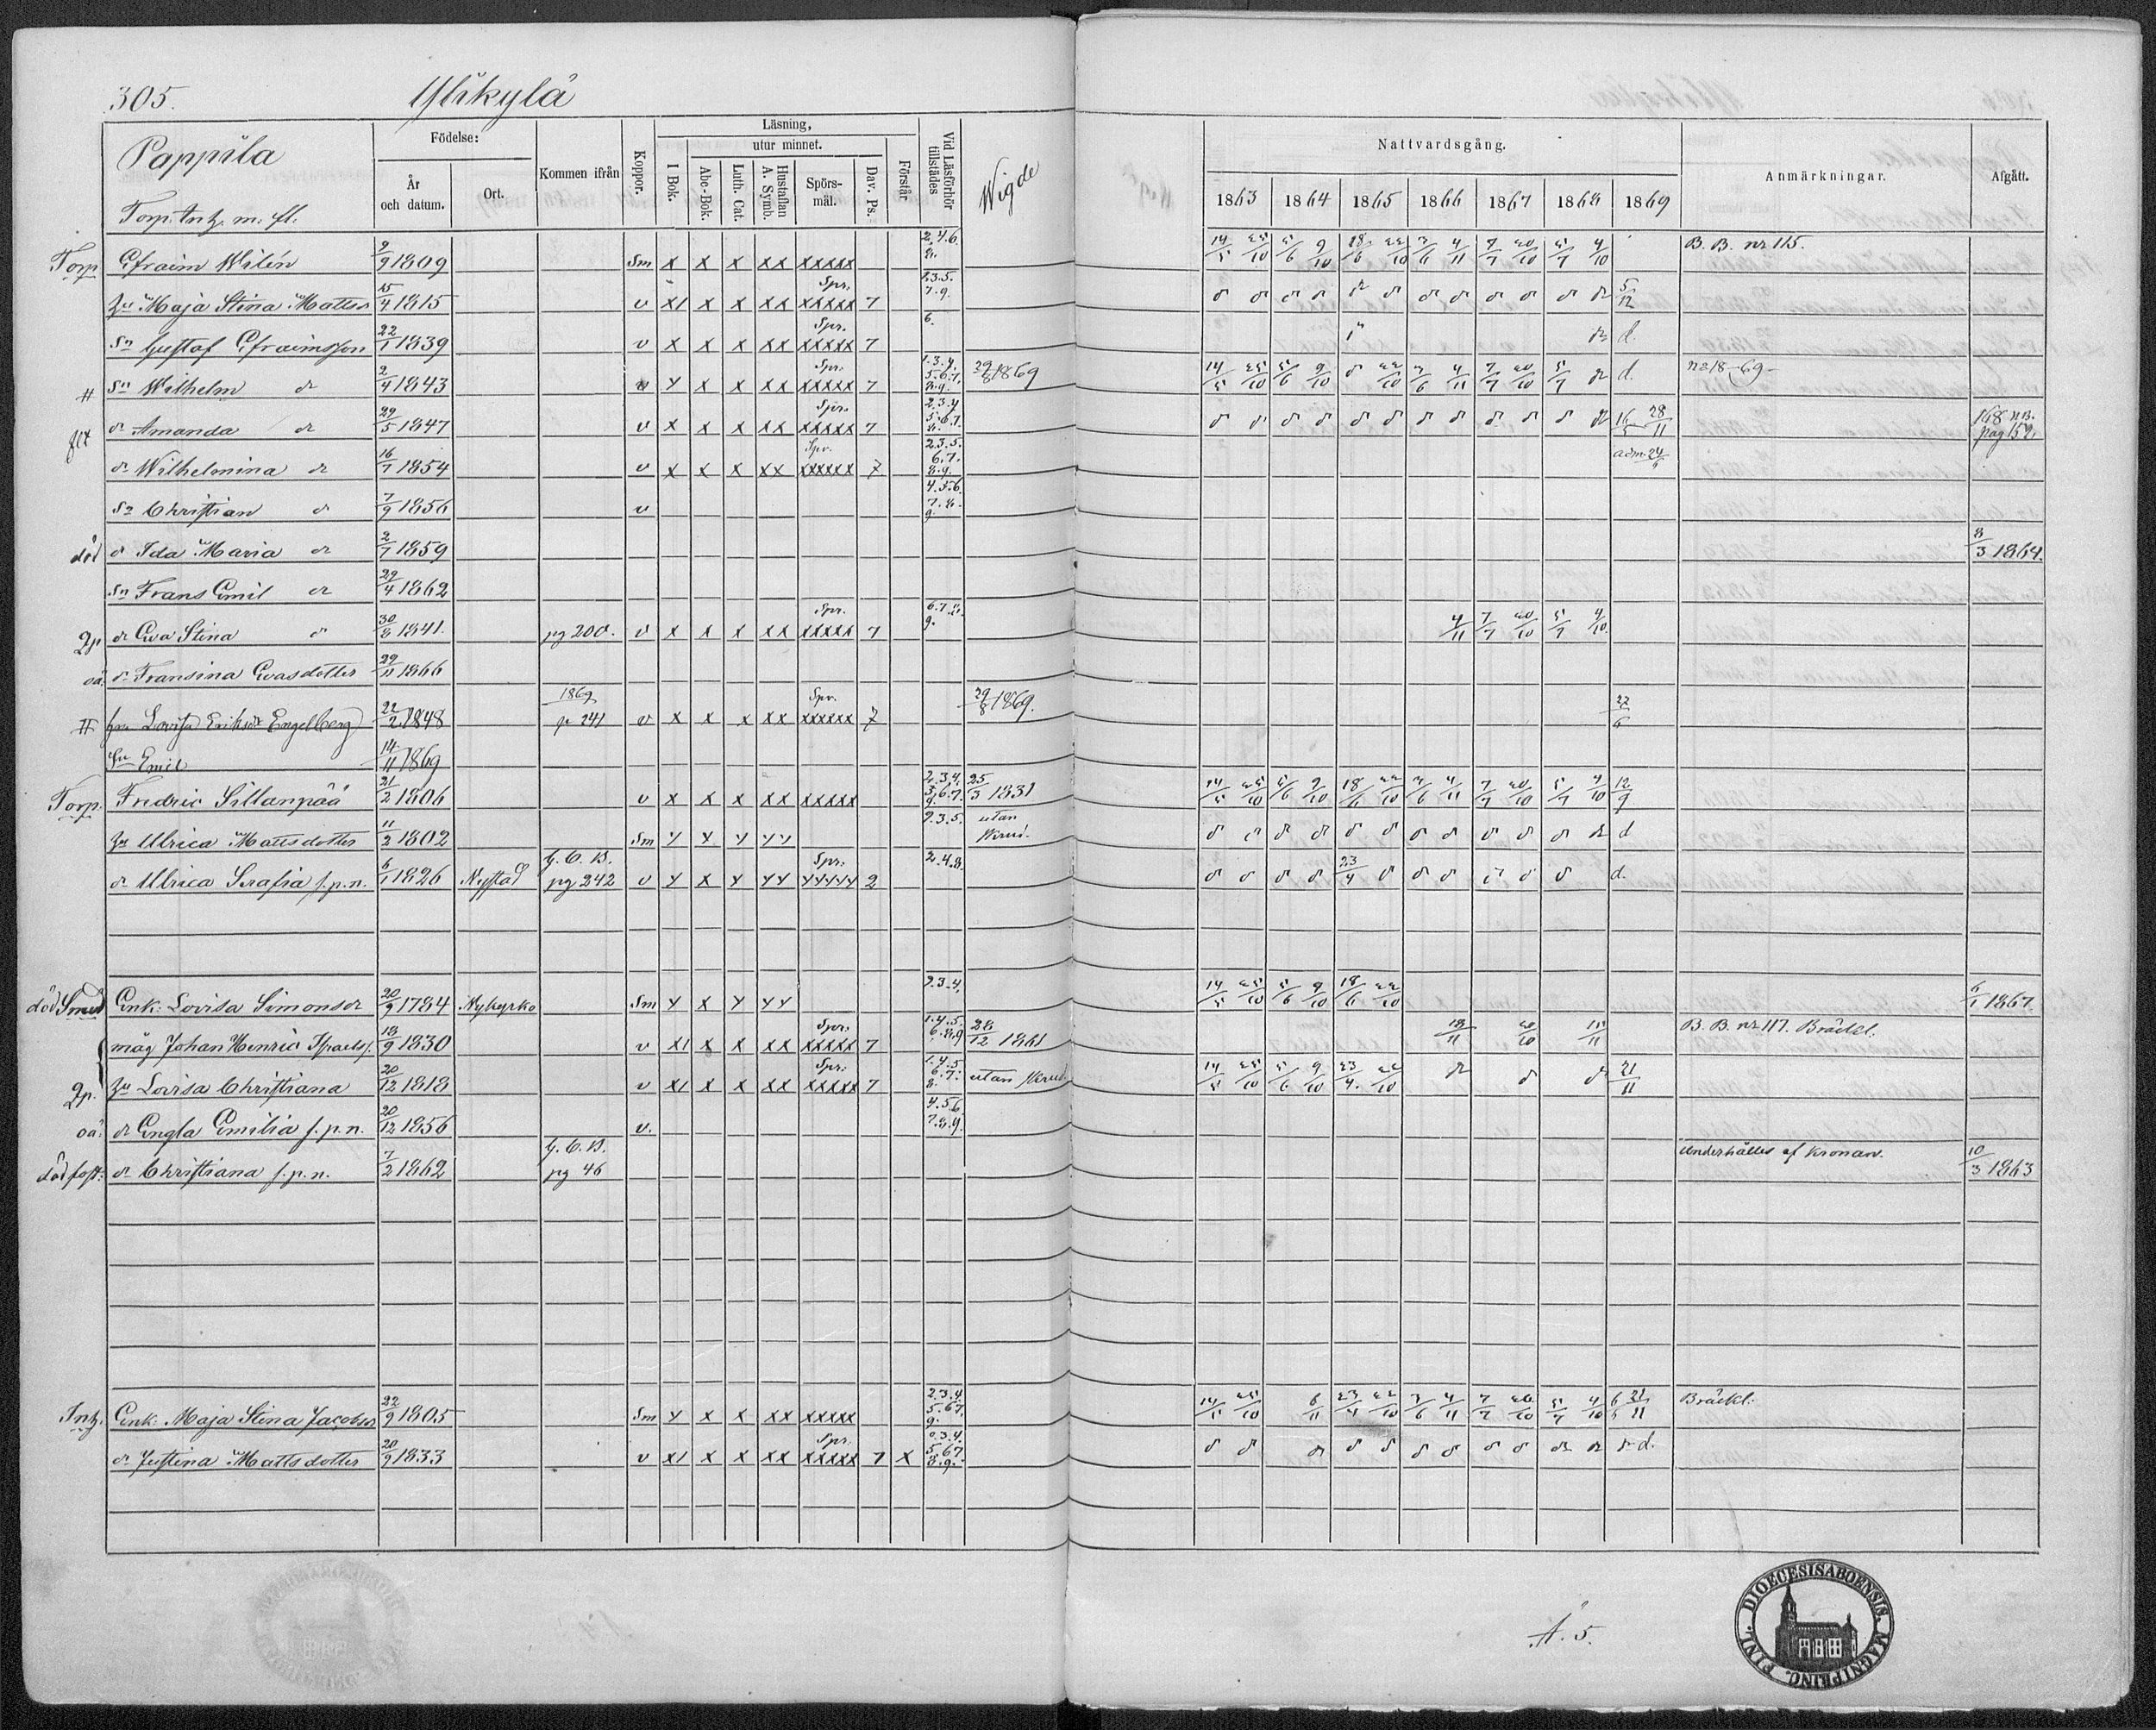 305. Ylikylä
Pappila
Torp. Intz. m. fl.
Födelse:
År och datum.
Ort.
Kommen ifrån
Koppor.
Läsning,
utur minnet.
I Bok.
Abc-Bok.
Luth. Cat.
Hustaflan A. Symb.
Spörsmål.
Dav. Ps.
Förstår
Vid Läsförhör tillstädes
Wigde
Nattvardsgång.
1863 1864 1865 1866 1867 1868 1869
Anmärkningar.
Afgått.
Torp Efraim Wilén 9/9 1809 Sm x x x xx xxxxx 2.4.6. 8. 14/5 25/10 5/6 9/10 18/6 22/10 3/6 4/11 7/7 20/10 5/7 4/10 B. B. nr 115.
hu Maja Stina Matts 15/4 1815 v x1 x x xx Spr. xxxxx 7 2.3.5. 7.9. 5/12
Sn Gustaf Efraimsson 22/1 1839 v x x x xx Spr. xxxxx 7 6. d.
# Sn Wilhelm dr 2/4 1843 v y x x xx Spr. xxxxx 7 1.3.4. 5.6.7. 8.9. 29/8 1869 14/5 25/10 5/6 9/10 22/10 3/6 4/11 7/7 20/10 5/7 d. nr 18-69-
dr Amanda dr 29/5 1847 v x x x xx Spr. xxxxx 7 2.3.4 5.6.7. 8. 16/5 28/11 168 pag 152.
dr Wilhelmina dr 16/7 1854 v x x x xx Spr. xxxxxx 7 2.3.5. 6.7. 8.9. adm. 24/6
Sn Christian dr 7/9 1856 v 4.5.6. 7.8. 9.
död dr Ida Maria dr 2/7 1859 8/3 1864.
Sn Frans Emil dr 29/4 1862
2p dr Eva Stina dr 30/8 1841. pg 200. v x x x xx Spr. xxxxx 7 6.7.8. 9. 4/11 7/7 20/10 5/7 4/10
oä. dr Fransina Evasdotter 29/11 1866
# hru Lovisa Eriksdr Engelberg 22/2 1848 1869 p 241 v x x x xx Spr. xxxxxx 7 29/8 1869. 27/6
Sn Emil 14/11 1869
Torp. Fredric Sillanpää 21/2 1806 v x x x xx xxxxx 2.3.4. 5.6.7. 9. 25/3 1831 14/5 25/10 5/6 9/10 18/6 22/10 3/6 4/11 7/7 20/10 5/7 4/10 12/9
hu Ulrica Mattsdotter 11/2 1802 Sm y y y yy 2.3.5. utan
dr Ulrica Serafia f.p.n. 6/1 1826 Nystad G. C. B. pg 242 v y x y yy Spr. yyyyy 2 2.4.8. 23/4 d.
död Smed Enk: Lovisa Simonsdr 20/9 1784 Nykyrko Sm y x y yy 2.3.4. 14/5 25/10 5/6 9/10 18/6 22/10 6/1 1867.
måg Johan Henric Isacks. 18/9 1830 v x1 x x xx Spr. xxxxx 7 1.4.5. 6.8.9 28/12 1861 18/11 20/10 11/11 B. B. nr 117. Bräckl.
2p. hu Lovisa Christiana 20/12 1818 v x1 x x xx Spr. xxxxx 7 1.4.5 6.7. 8. utan 14/5 25/10 5/6 9/10 23/4. 22/10 21/11
oä: dr Engla Emilia f.p.n. 20/12 1856 v. 4.5.6 7.8.9.
död fost: dr Christiana f.p.n. 7/2 1862 G. C. B. pg 46 Underhålles af Kronan. 10/3 1863
Intz. Enk: Maja Stina Jacobsdr 22/9 1805 Sm y x x xx xxxxx 2.3.4. 5.6.7. 9. 14/5 25/10 6/11 23/4 22/10 3/6 4/11 7/7 20/10 5/7 4/10 6/5 21/11 Bräckl.
dr Justina Mattsdotter 20/9 1833 v x1 x x xx Spr. xxxxx 7 x 2.3.4. 5.6.7 8.9. d.
A. 5.
DIOECESIS ABOENSIS. MAGNI PRINC. FINL.